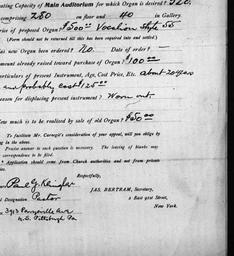 ating Capacity of Main Auditorium for which Organ is desired? 320.
comprising 280 on floor and 40 in Gallery.
rice of proposed Organ? $1500.00
(Form should not be returned till this has been required data and settled.)
as new Organ been ordered? No. Date of order? —
mount already raised toward purchase of Organ? $100.00
articulars of present Instrument, Age, Cost Price, Etc. about 20 years
and probably cost $125.00
eason for displacing present instrument? Worn out
ow much is to be realized by sale of old Organ? $50.00
To facilitate Mr. Carnegie's consideration of your appeal, will you oblige by
ing in the above.
Precise answer to each question is necessary. The leaving of blanks may
correspondence to be filed.
* Application should come from Church authorities and not from private
ties.
Respectfully,
Paul G.
JAS. BERTRAM, Secretary,
d Designation Pastor
2 East 91st Street,
3913 Perrysville Ave
New York.
N.S. Pittsburgh Pa